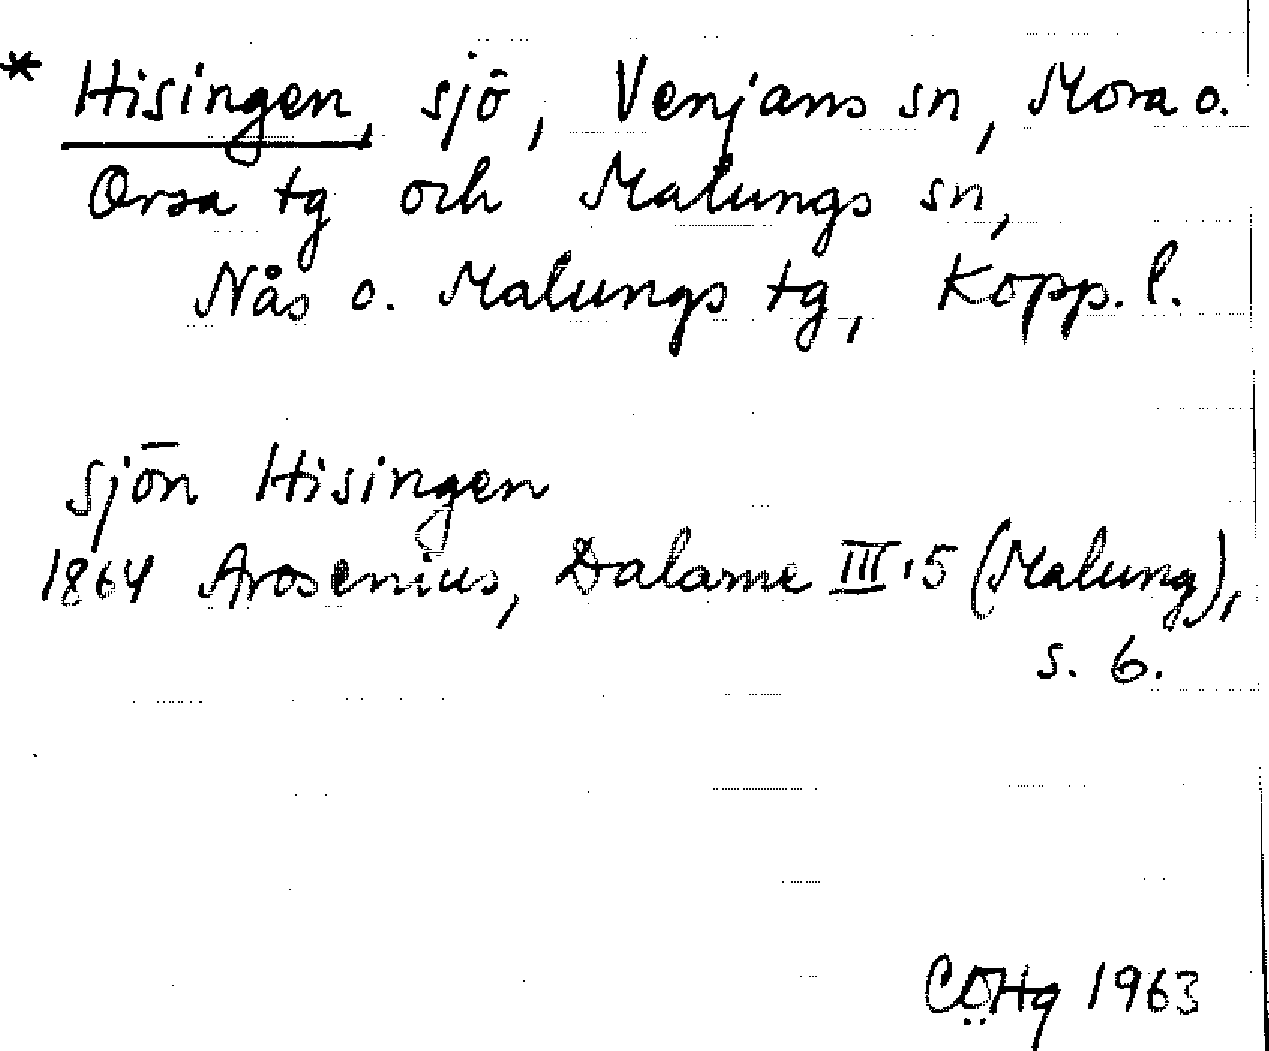 * Hisingen, sjö, Venjans sn, Mora o.
Orsa tg och Malungs sn,
Nås o. Malungs tg, Kopp. l.
sjön Hisingen
1864 Arosenius, Dalarne III:5 (Malung),
s. 6.
CÖHg 1963